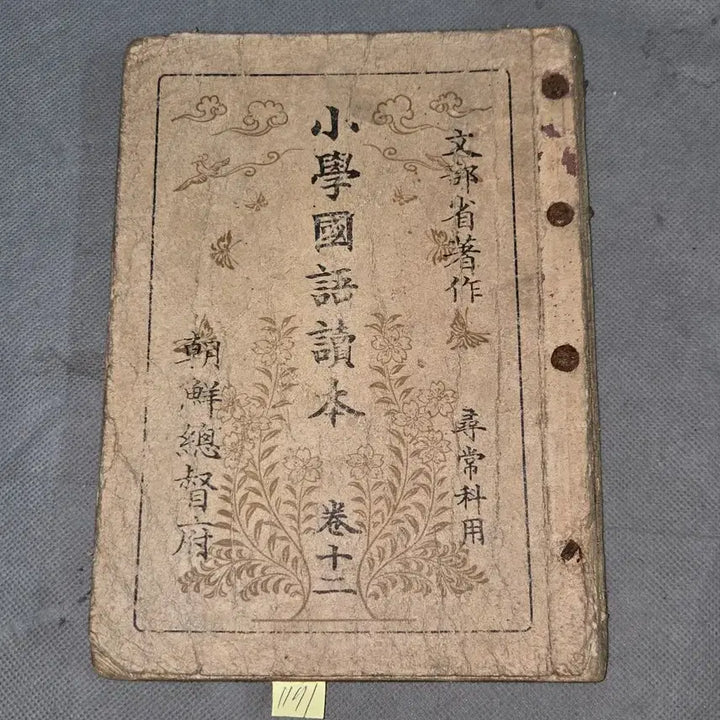 文部省著作 尋常科用
小學國語讀本 卷十二
朝鮮總督府
1191